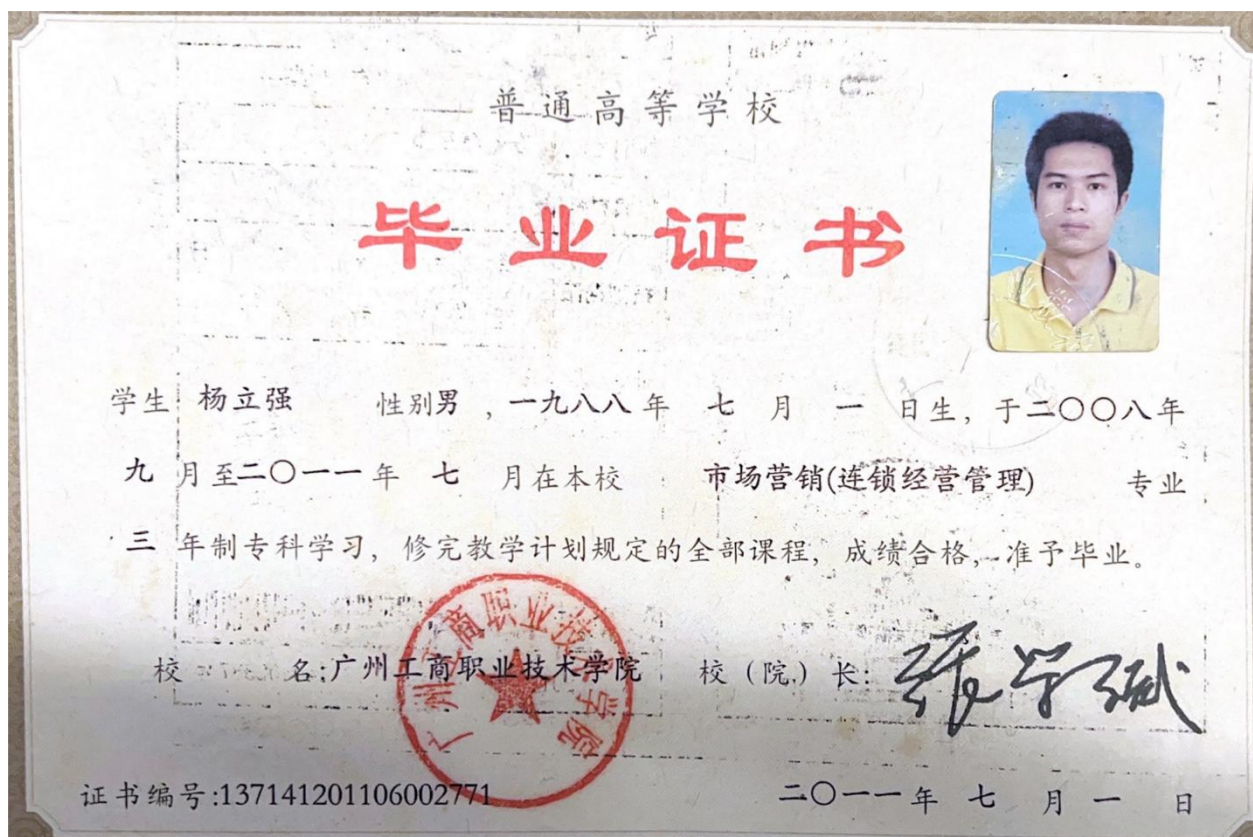 普通高等学校
毕业证书
学生 杨立强 性别男,一九八八年 七 月 一 日生,于二〇〇八年
九 月至二〇一一年 七 月在本校 市场营销(连锁经营管理) 专业
三 年制专科学习,修完教学计划规定的全部课程,成绩合格,准予毕业。
广州工商职业技术学院
校 名:广州工商职业技术学院 校(院)长:
证书编号:137141201106002771 二〇一一年 七 月 一 日